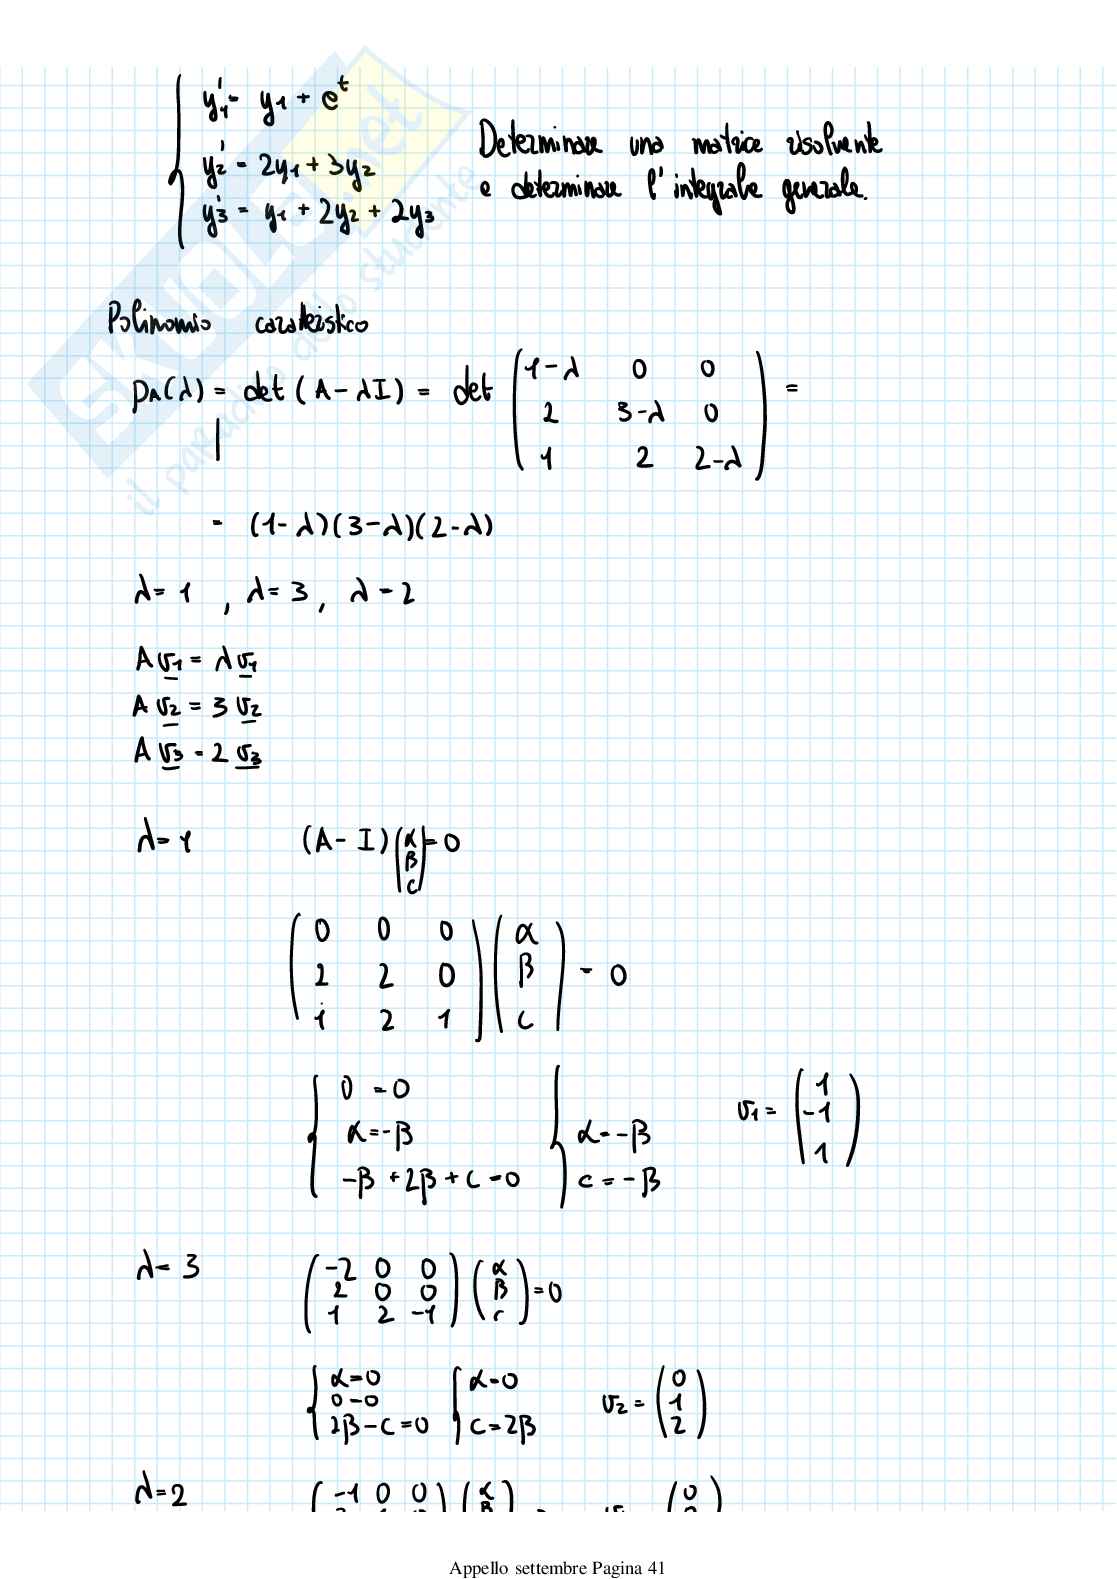 y₁' = y₁ + e^t
y₂' = 2y₁ + 3y₂
y₃' = y₁ + 2y₂ + 2y₃
Determinare una matrice risolvente
e determinare l'integrale generale.
SKUOLA.net
il paradiso dello studente
Polinomio caratteristico
p_A(λ) = det (A - λI) = det ( 1-λ 0 0 ) =
( 2 3-λ 0 )
( 1 2 2-λ )
= (1-λ)(3-λ)(2-λ)
λ = 1 , λ = 3 , λ = 2
A v₁ = λ v₁
A v₂ = 3 v₂
A v₃ = 2 v₃
λ = 1 (A - I) ( α β c ) = 0
( 0 0 0 ) ( α )
( 2 2 0 ) ( β ) = 0
( 1 2 1 ) ( c )
{ 0 = 0
{ α = -β { α = -β
{ -β + 2β + c = 0 { c = -β
v₁ = ( 1 -1 1 )
λ = 3 ( -2 0 0 ) ( α )
( 2 0 0 ) ( β ) = 0
( 1 2 -1 ) ( c )
{ α = 0 { α = 0
{ 0 = 0
{ 2β - c = 0 { c = 2β
v₂ = ( 0 1 2 )
λ = 2 ( -1 0 0 ) ( α ( 0
Appello settembre Pagina 41